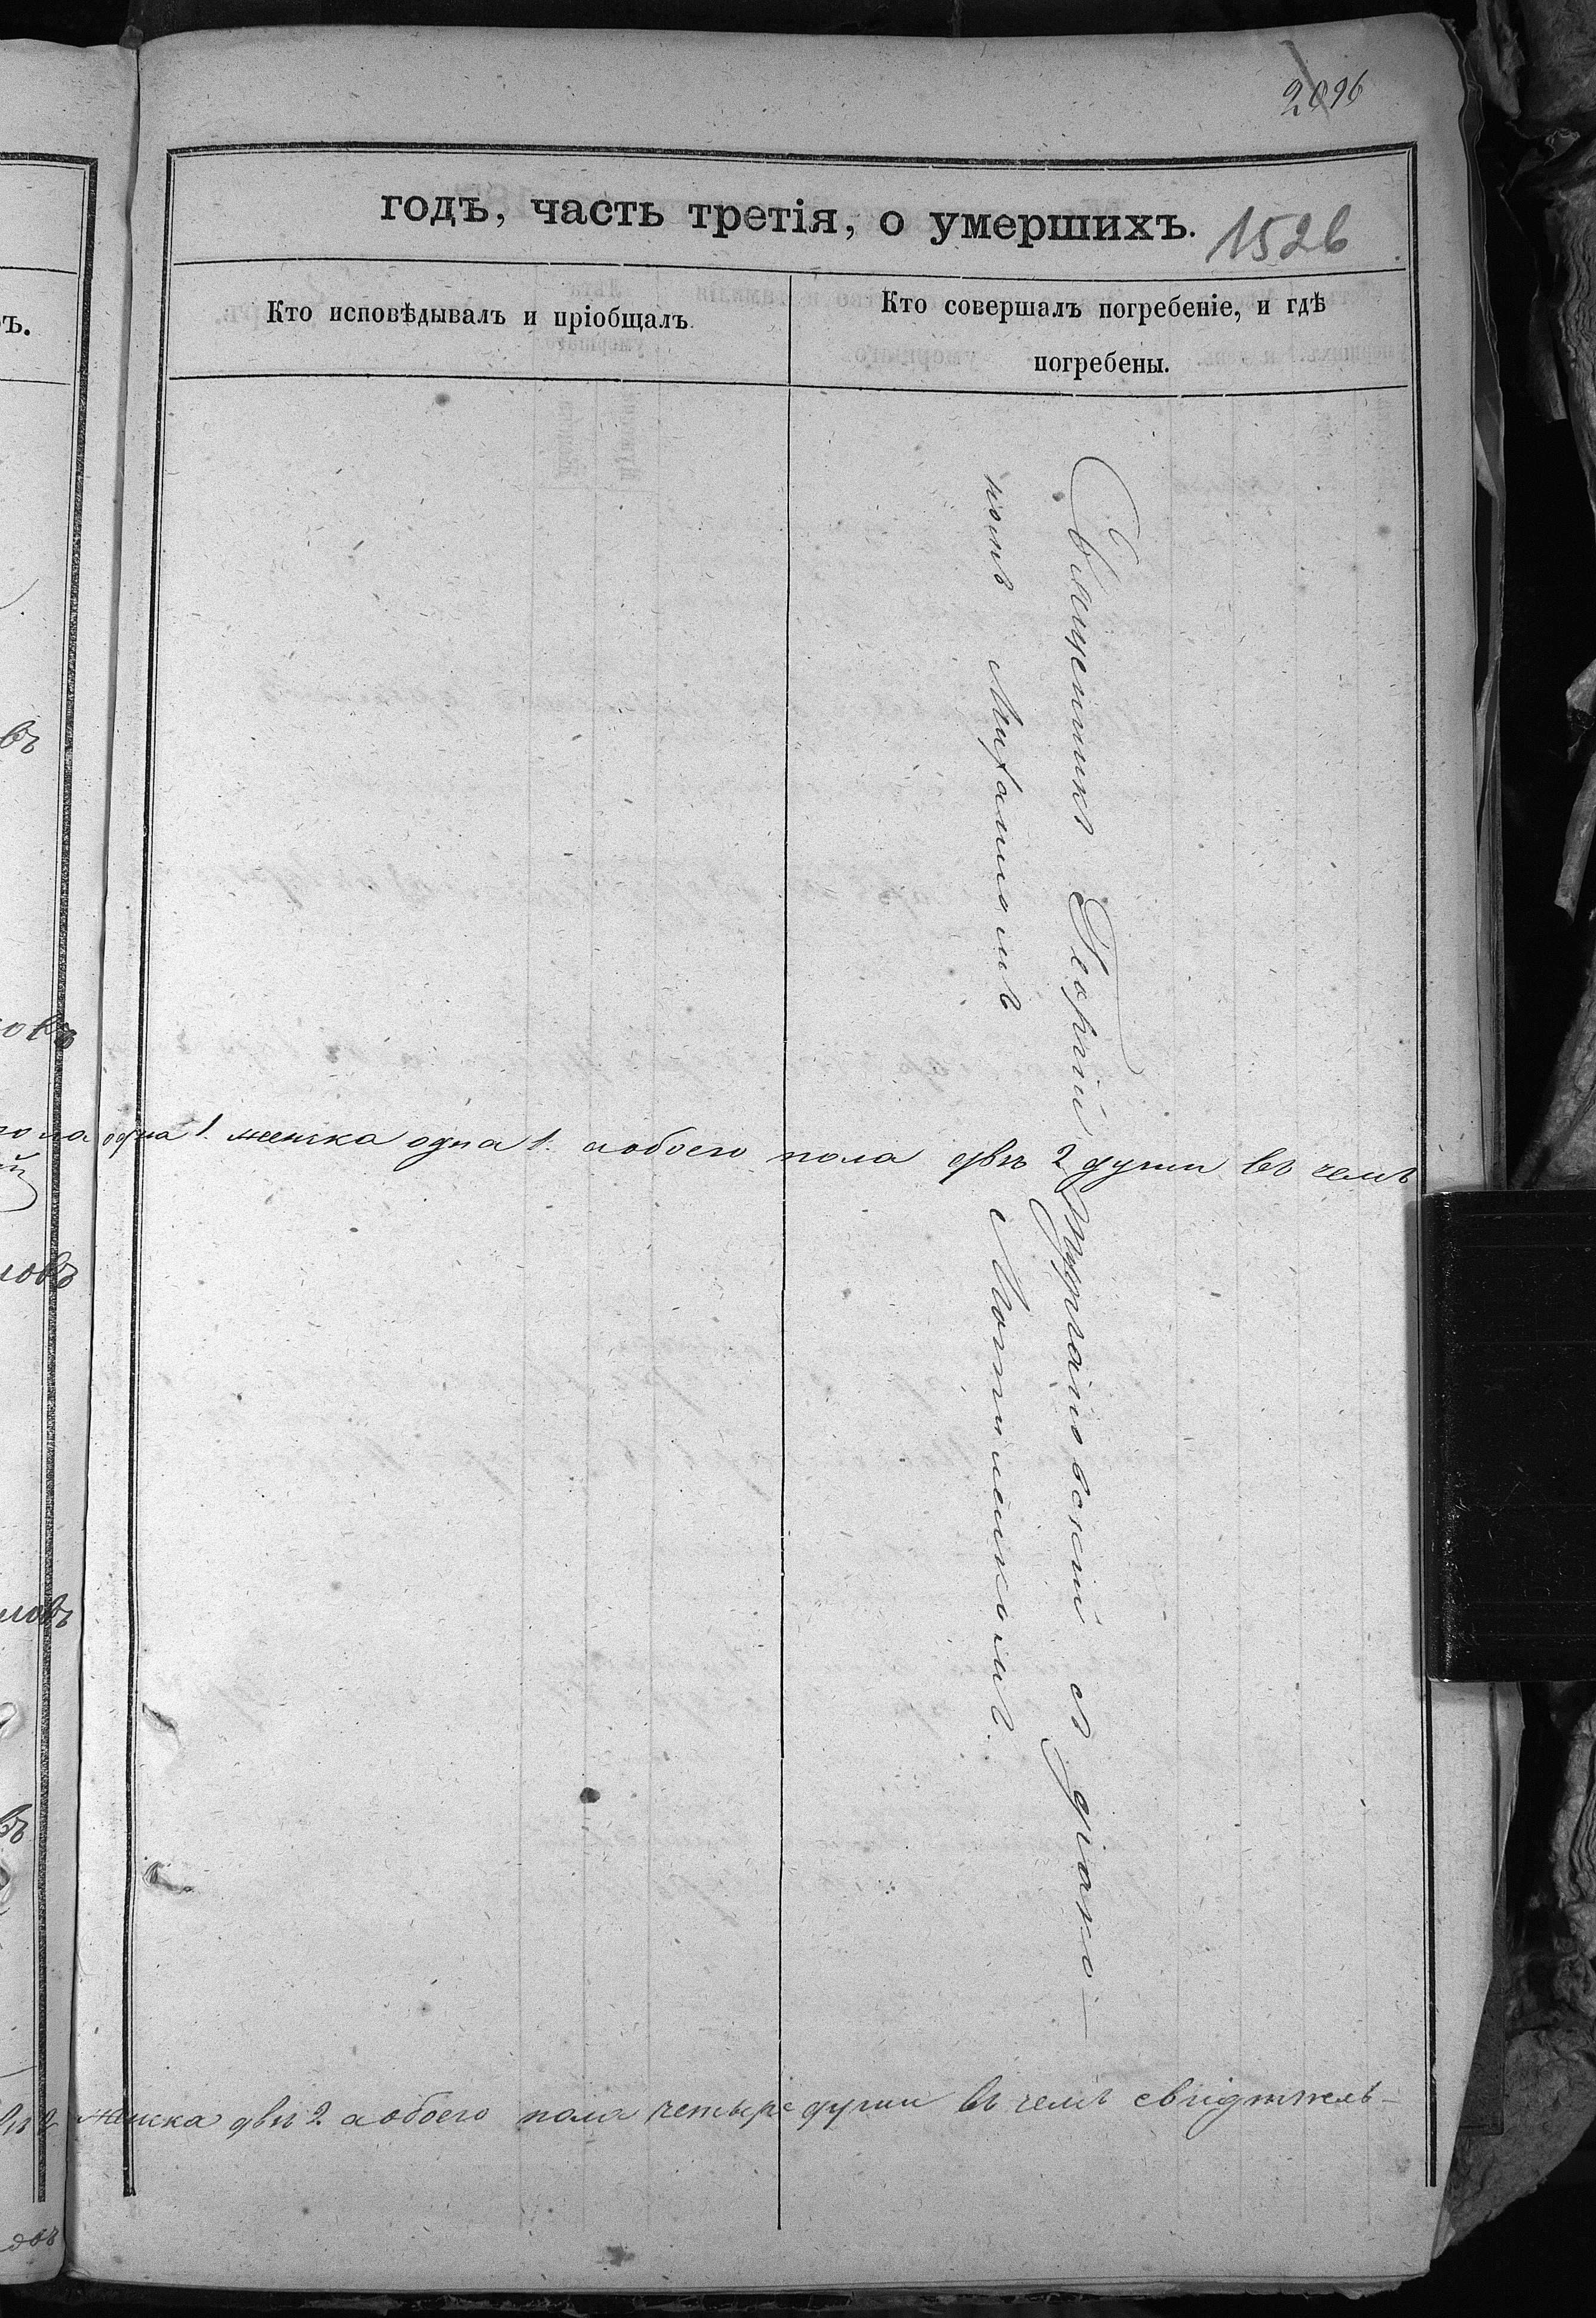 96
годъ, часть третія, о умершихъ.
1526
Кто исповѣдывалъ и пріобщалъ.
Кто совершалъ погребеніе, и гдѣ
погребены.
Священникъ Георгій съ діако-
номъ Михаиломъ
одна 1. женска одна 1. а обоего пола двѣ 2 души въ чемъ
женска двѣ 2 а обоего пола четыре души въ чемъ свидѣтель-